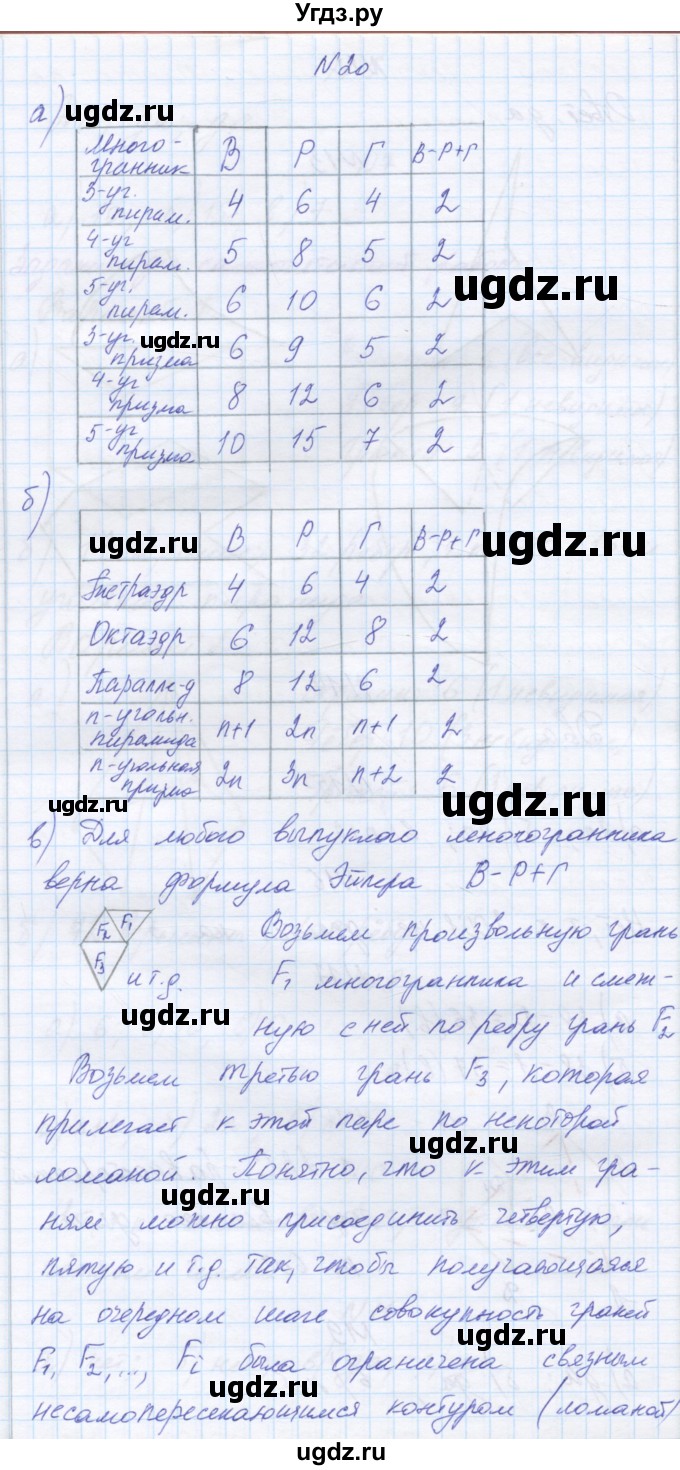 Угдз.ру
N 20
а)
ugdz.ru
Много-гранник В Р Г В-Р+Г
3-уг. пирам. 4 6 4 2
4-уг пирам. 5 8 5 2
5-уг. пирам. 6 10 6 2
ugdz.ru
3-уг. призма 6 9 5 2
ugdz.ru
4-уг призма 8 12 6 2
5-уг призма 10 15 7 2
ugdz.ru
б)
ugdz.ru В Р Г В-Р+Г
ugdz.ru
Тетраэдр 4 6 4 2
Октаэдр 6 12 8 2
Паралл-д 8 12 6 2
n-угольн. пирамида n+1 2n n+1 2
n-угольная призма 2n 3n n+2 2
ugdz.ru
ugdz.ru
в) Для любого выпуклого многогранника
верна формула Эйлера В-Р+Г
F2 F1 Возьмем произвольную грань
F3 и т.д. F1 многогранника и смеж-
ную с ней по ребру грань F2
ugdz.ru
ugdz.ru
Возьмем третью грань F3, которая
прилегает к этой паре по некоторой
ugdz.ru
ломаной. Понятно, что к этим гра-
ugdz.ru
ням можно присоединить четвертую,
пятую и т.д. так, чтобы получающаяся
на очередном шаге совокупность граней
ugdz.ru
F1, F2,..., Fi была ограничена связным
ugdz.ru
несамопересекающимся контуром (ломаной)
ugdz.ru
ugdz.ru